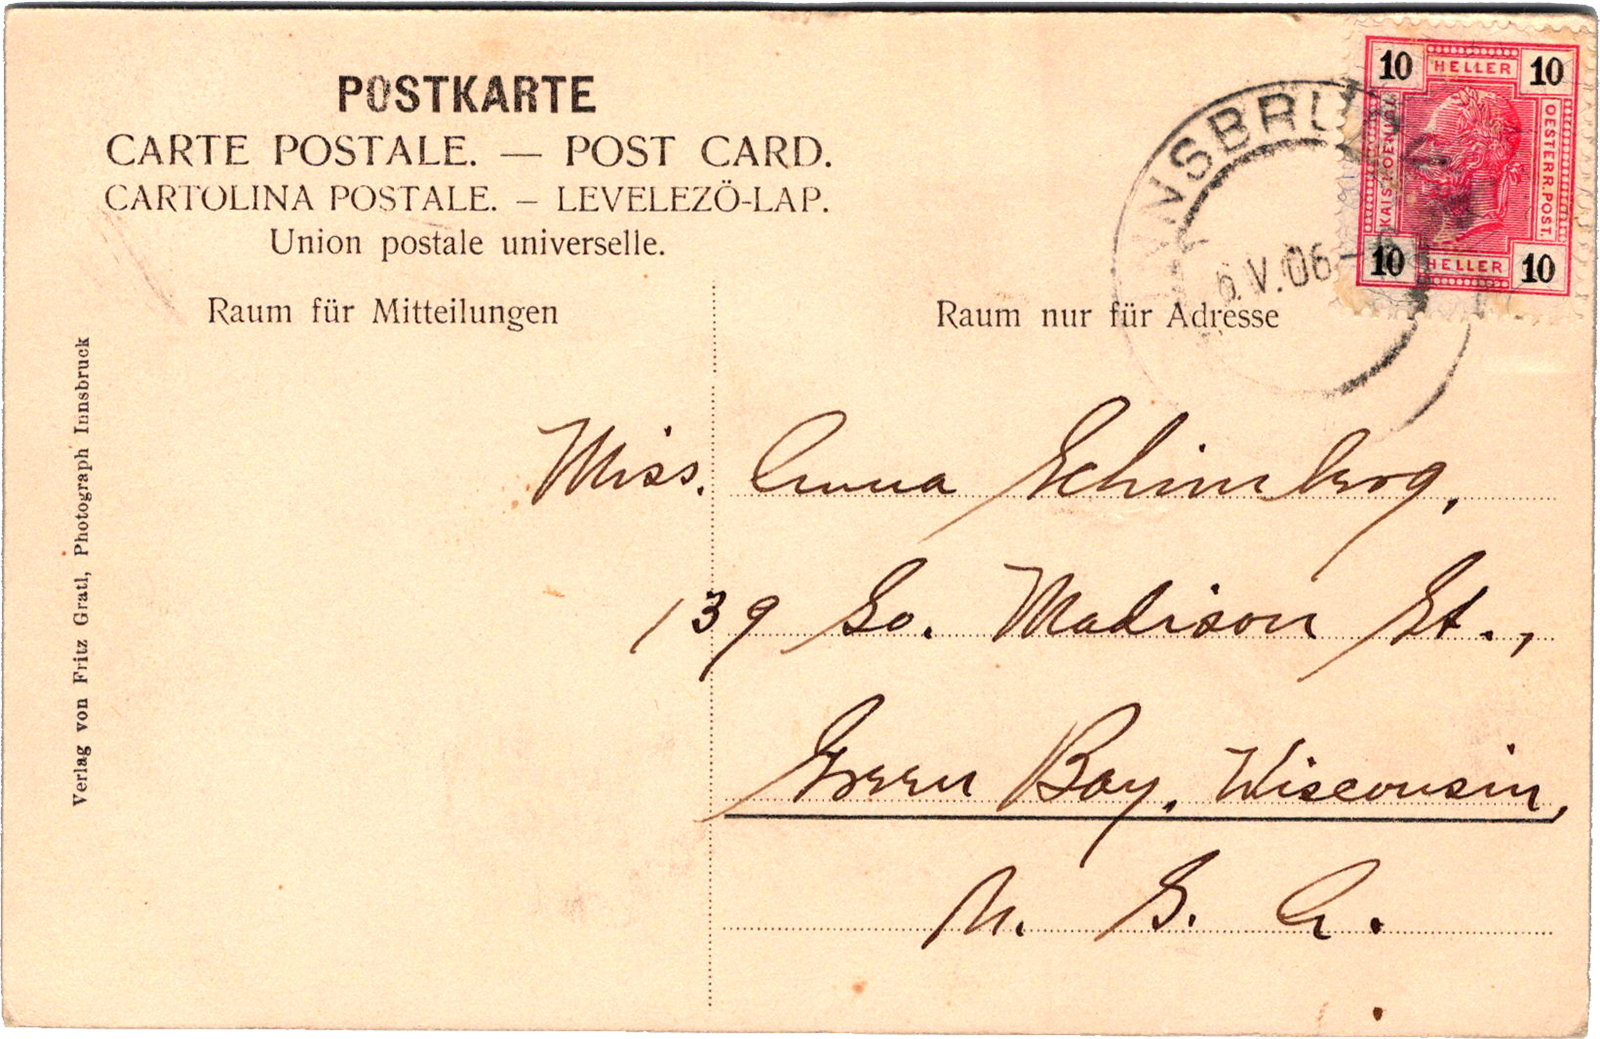 POSTKARTE
CARTE POSTALE. — POST CARD.
CARTOLINA POSTALE. — LEVELEZŐ-LAP.
Union postale universelle.
Raum für Mitteilungen
Raum nur für Adresse
Verlag von Fritz Gratl, Photograph Innsbruck
10 HELLER 10
KAIS.K.OESTERR.POST.
10 HELLER 10
INNSBRUCK
6.V.06
Miss. Anna
139 So. Madison St.,
Green Bay, Wisconsin,
U. S. A.